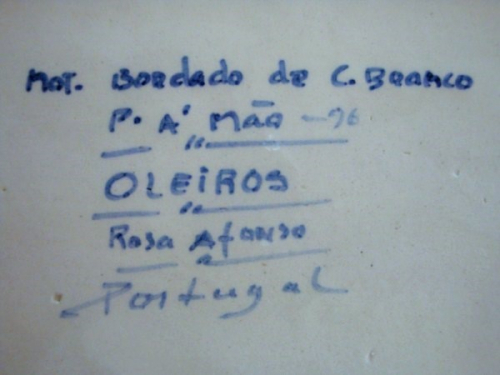 Mot. Bordado de C. Branco
P. A' Mão - 96
OLEiROS
Rosa Afonso
Portugal